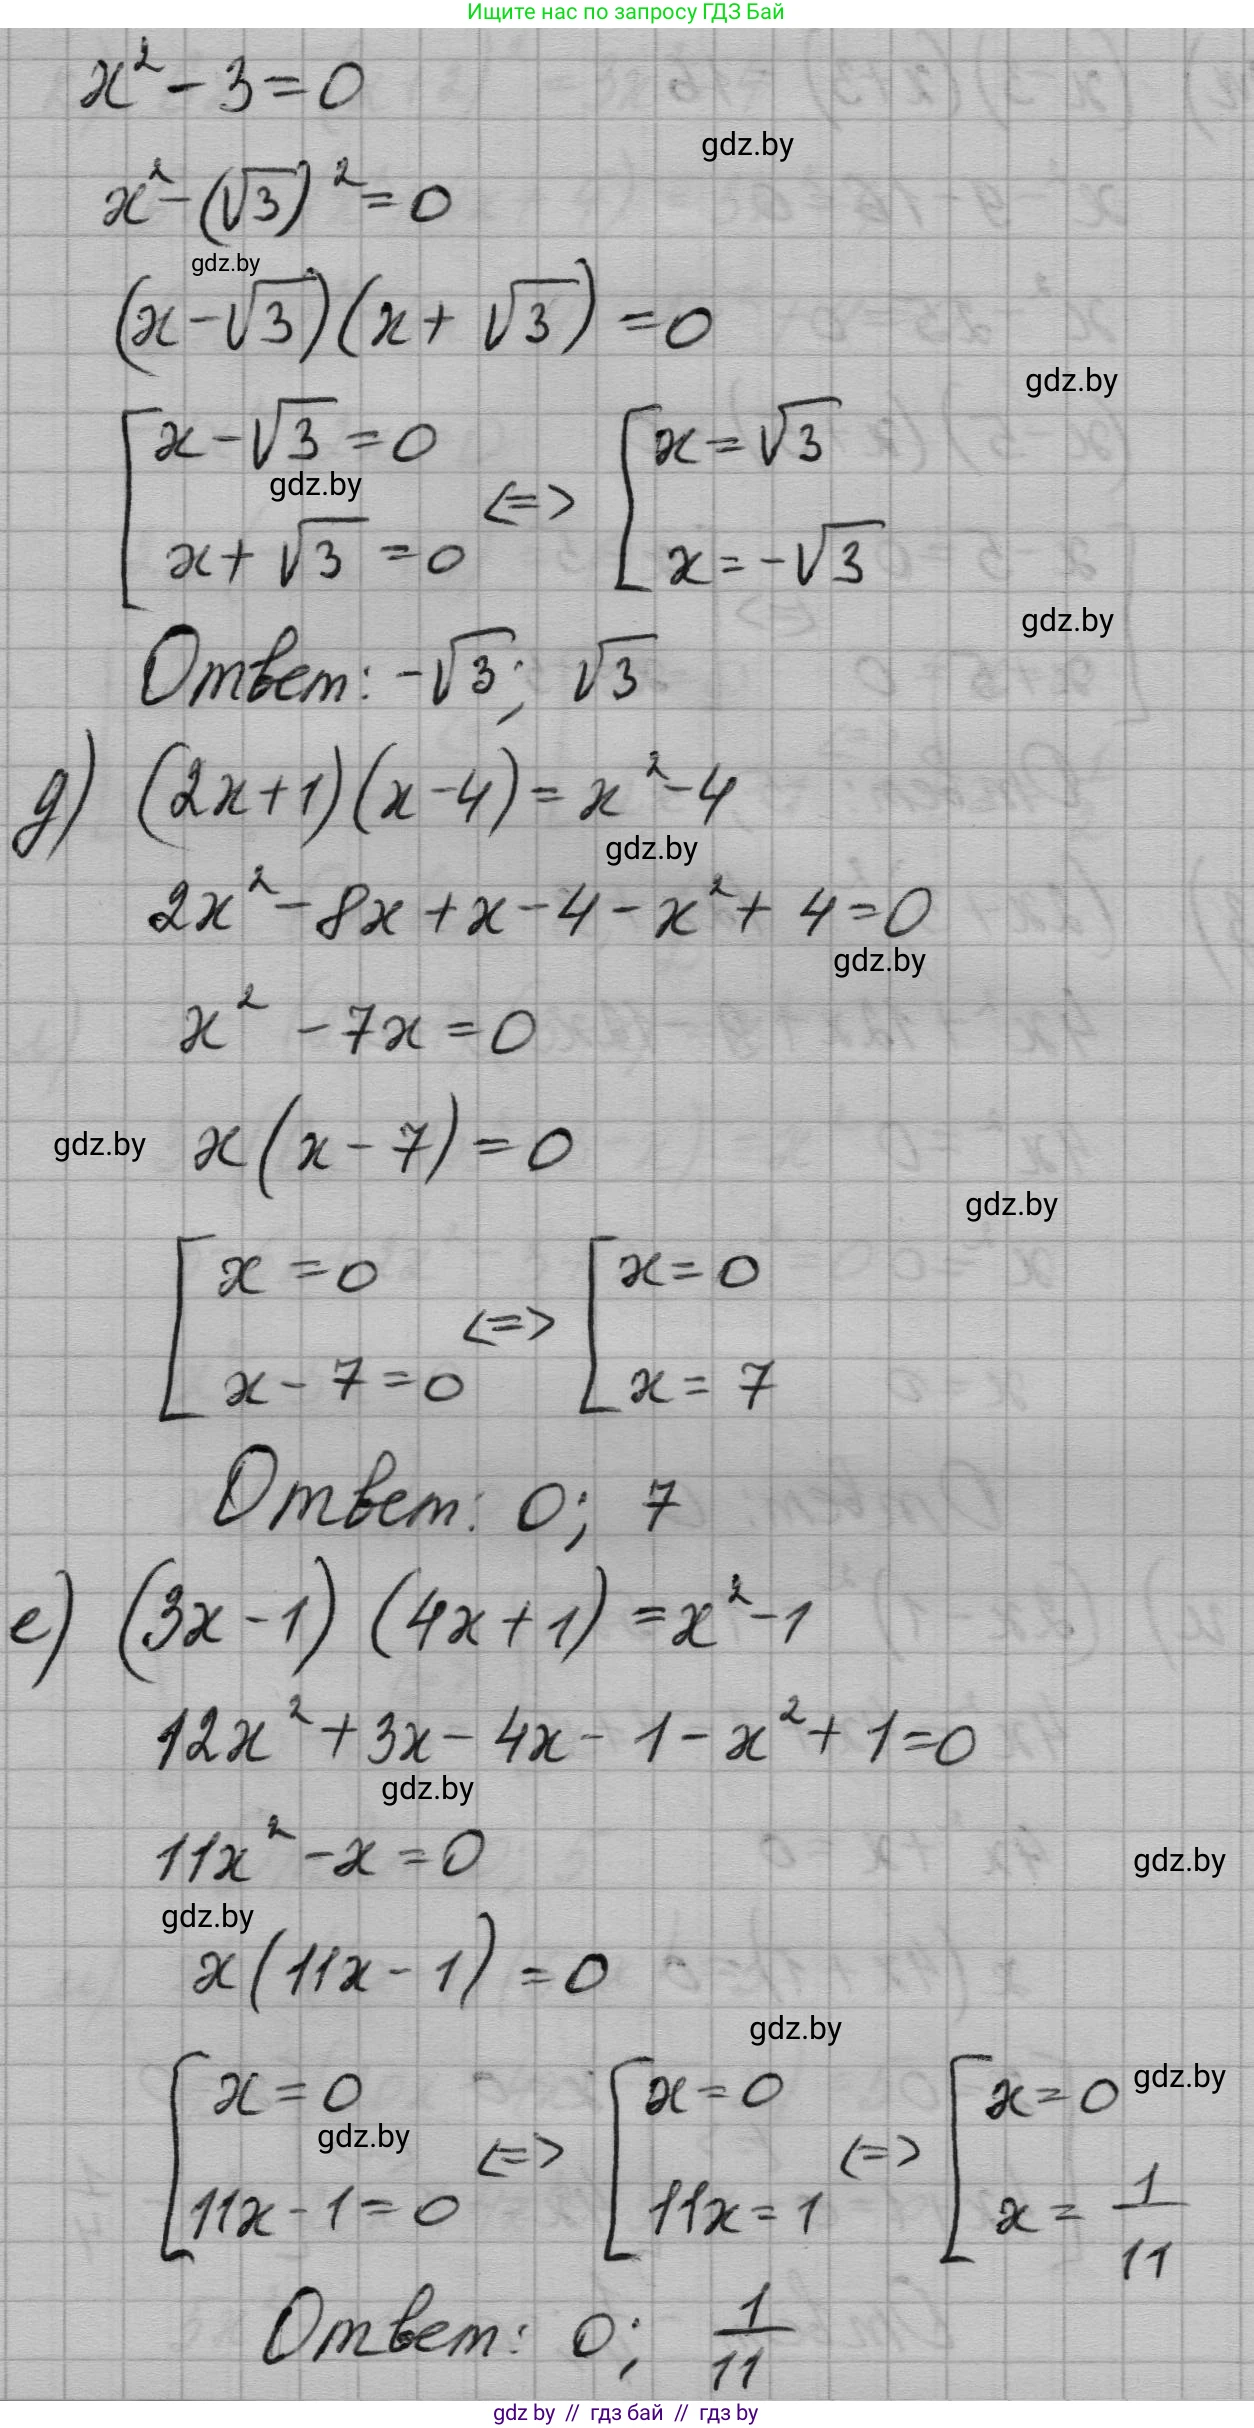 Ищите нас по запросу ГДЗ Бай
x² - 3 = 0
gdz.by
x² - (√3)² = 0
gdz.by
(x - √3)(x + √3) = 0
gdz.by
[ x - √3 = 0 <=> [ x = √3
gdz.by
x + √3 = 0 x = -√3
gdz.by
Ответ: -√3; √3
д) (2x + 1)(x - 4) = x² - 4
gdz.by
2x² - 8x + x - 4 - x² + 4 = 0
gdz.by
x² - 7x = 0
gdz.by x(x - 7) = 0
gdz.by
[ x = 0 <=> [ x = 0
x - 7 = 0 x = 7
Ответ: 0; 7
е) (3x - 1) (4x + 1) = x² - 1
12x² + 3x - 4x - 1 - x² + 1 = 0
gdz.by
11x² - x = 0
gdz.by
gdz.by
x(11x - 1) = 0
gdz.by
[ x = 0 <=> [ x = 0 <=> [ x = 0
gdz.by
gdz.by
11x - 1 = 0 11x = 1 x = 1/11
Ответ: 0; 1/11
gdz by // гдз бай // гдз by